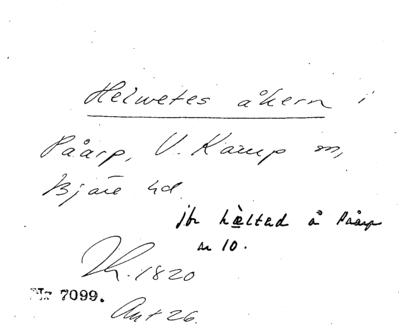 Helwetes åkern i
Påarp, V. Karup sn,
Bjäre hd
jfr hèltad å Påarp
n 10.
Lh. 1820
Nr 7099.
Akt 26.